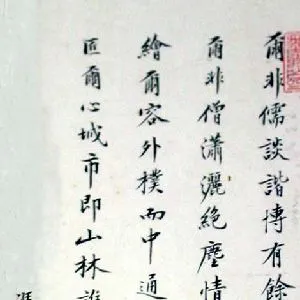 爾非儒談諧博有餘
爾非僧瀟灑絕塵情
繪爾容外樸而中通
匡爾心城市即山林誰
馮